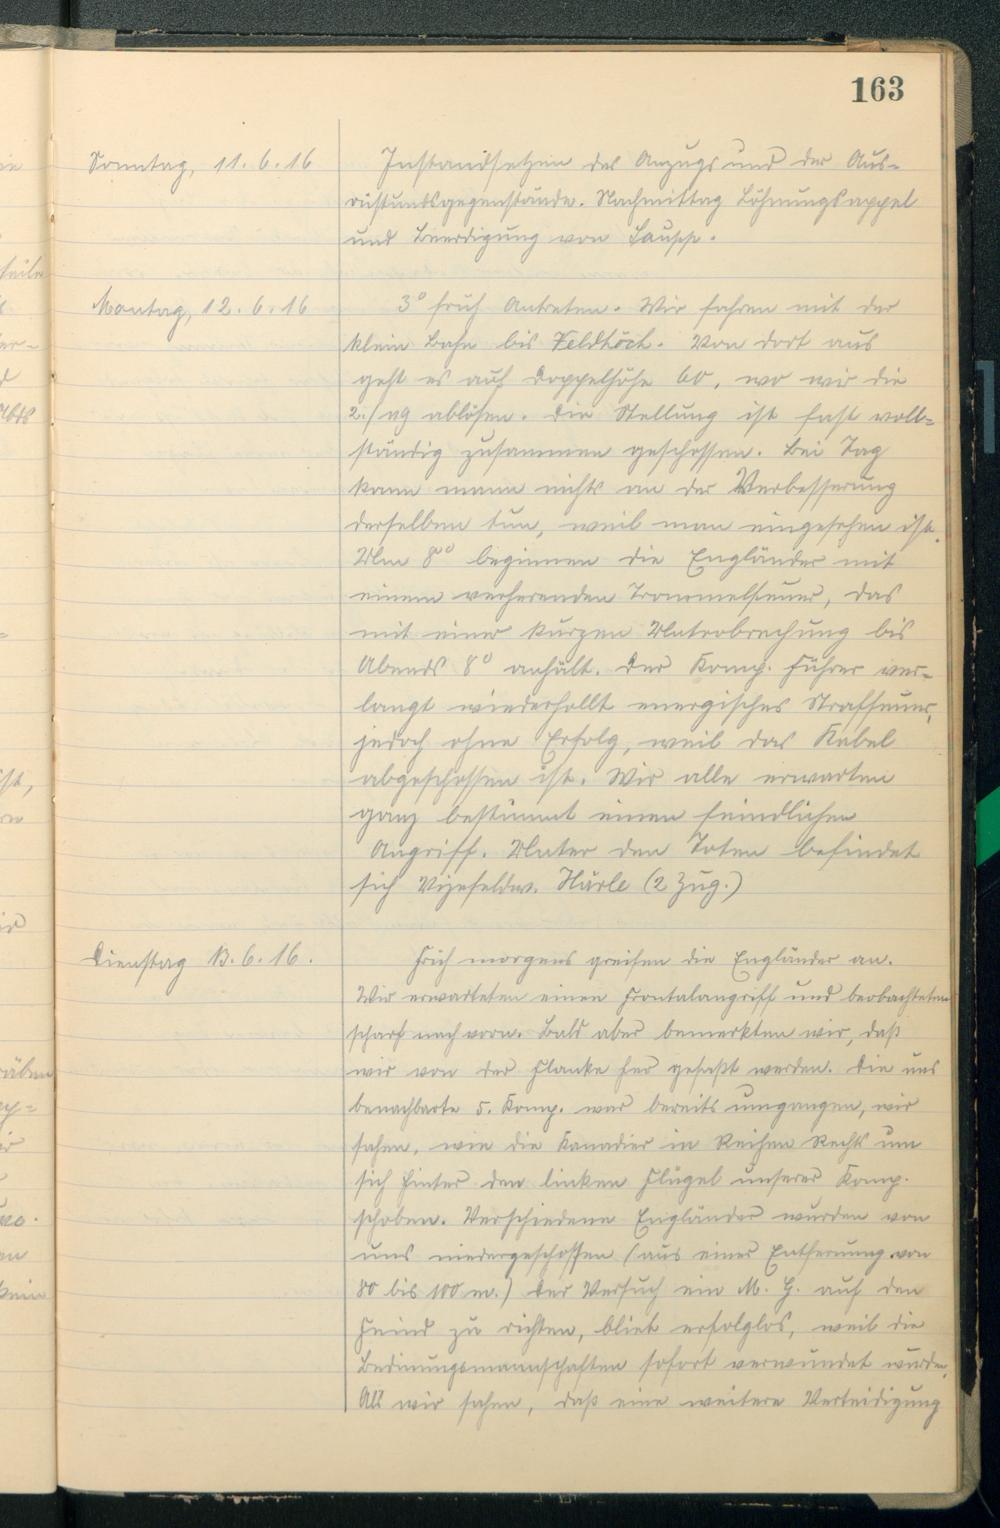 163
Sonntag, 11.6.16
Instandsetzen des Anzugs und der Aus-
rüstundsgegenstände. Nachmittag Löhnungsappel
und Beerdigung von Laupp.
Montag, 12.6.16
3° früh Antreten. Wir fahren mit der
klein Bahn bis Feldhöck. Von dort aus
geht es auf Doppelhöhe 60, wo wir die
2./119 ablösen. Die Stellung ist fast voll-
ständig zusammen geschossen. Bei Tag
kann mann nichts an der Verbesserung
derselben tun, weil man eingesehen ist.
Um 8°° beginnen die Engländer mit
einem verherenden Trommelfeuer, das
mit einer kurzen Unterbrechung bis
Abends 8° anhält. Der Komp. Führer ver-
langt wiederhollt energisches Straffeuer,
jedoch ohne Erfolg, weil das Kabel
abgeschossen ist. Wir alle erwarten
ganz bestimmt einen feindlichen
Angriff. Unter den Toten befindet
sich Vizefeldw. Härle (2 Zug.)
Dienstag 13.6.16.
Früh morgens greifen die Engländer an.
Wir erwarteten einen Frontalangriff und beobachteten
scharf nach vorn. Bald aber bemerkten wir, daß
wir von der Flanke her gefaßt werden. Die uns
benachbarte 5. Komp. war bereits umgangen, wir
sahen, wie die Kanadier in Reihen Rechts um
sich hinter den linken Flügel unserer Komp.
schoben. Verschiedene Engländer wurden von
uns niedergeschossen (aus einer Entfernung von
80 bis 100 m.) Der Versuch ein M. G. auf den
Feind zu richten, bliebt erfolglos, weil die
Bedinungsmannschaften sofort verwundet wurden.
Als wir sahen, daß eine weitere Verteidigung